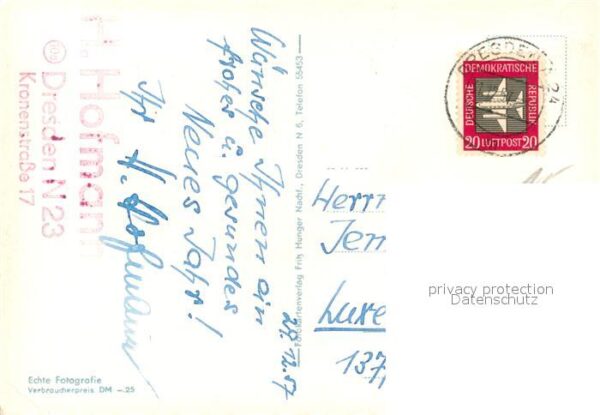 H. Hofmann
(10a) Dresden N 23
Kronenstraße 17
Wünsche Ihnen ein
frohes u. gesundes
Neues Jahr!
Ihr H. Hofmann
29.12.57
Echte Fotografie
Verbraucherpreis DM –.25
Fotokartenverlag Fritz Hunger Nachf., Dresden N 6, Telefon 55453
DRESDEN N 24
DEMOKRATISCHE
DEUTSCHE
REPUBLIK
20 LUFTPOST 20
Herrn
Jen
Luxe
137,
privacy protection
Datenschutz